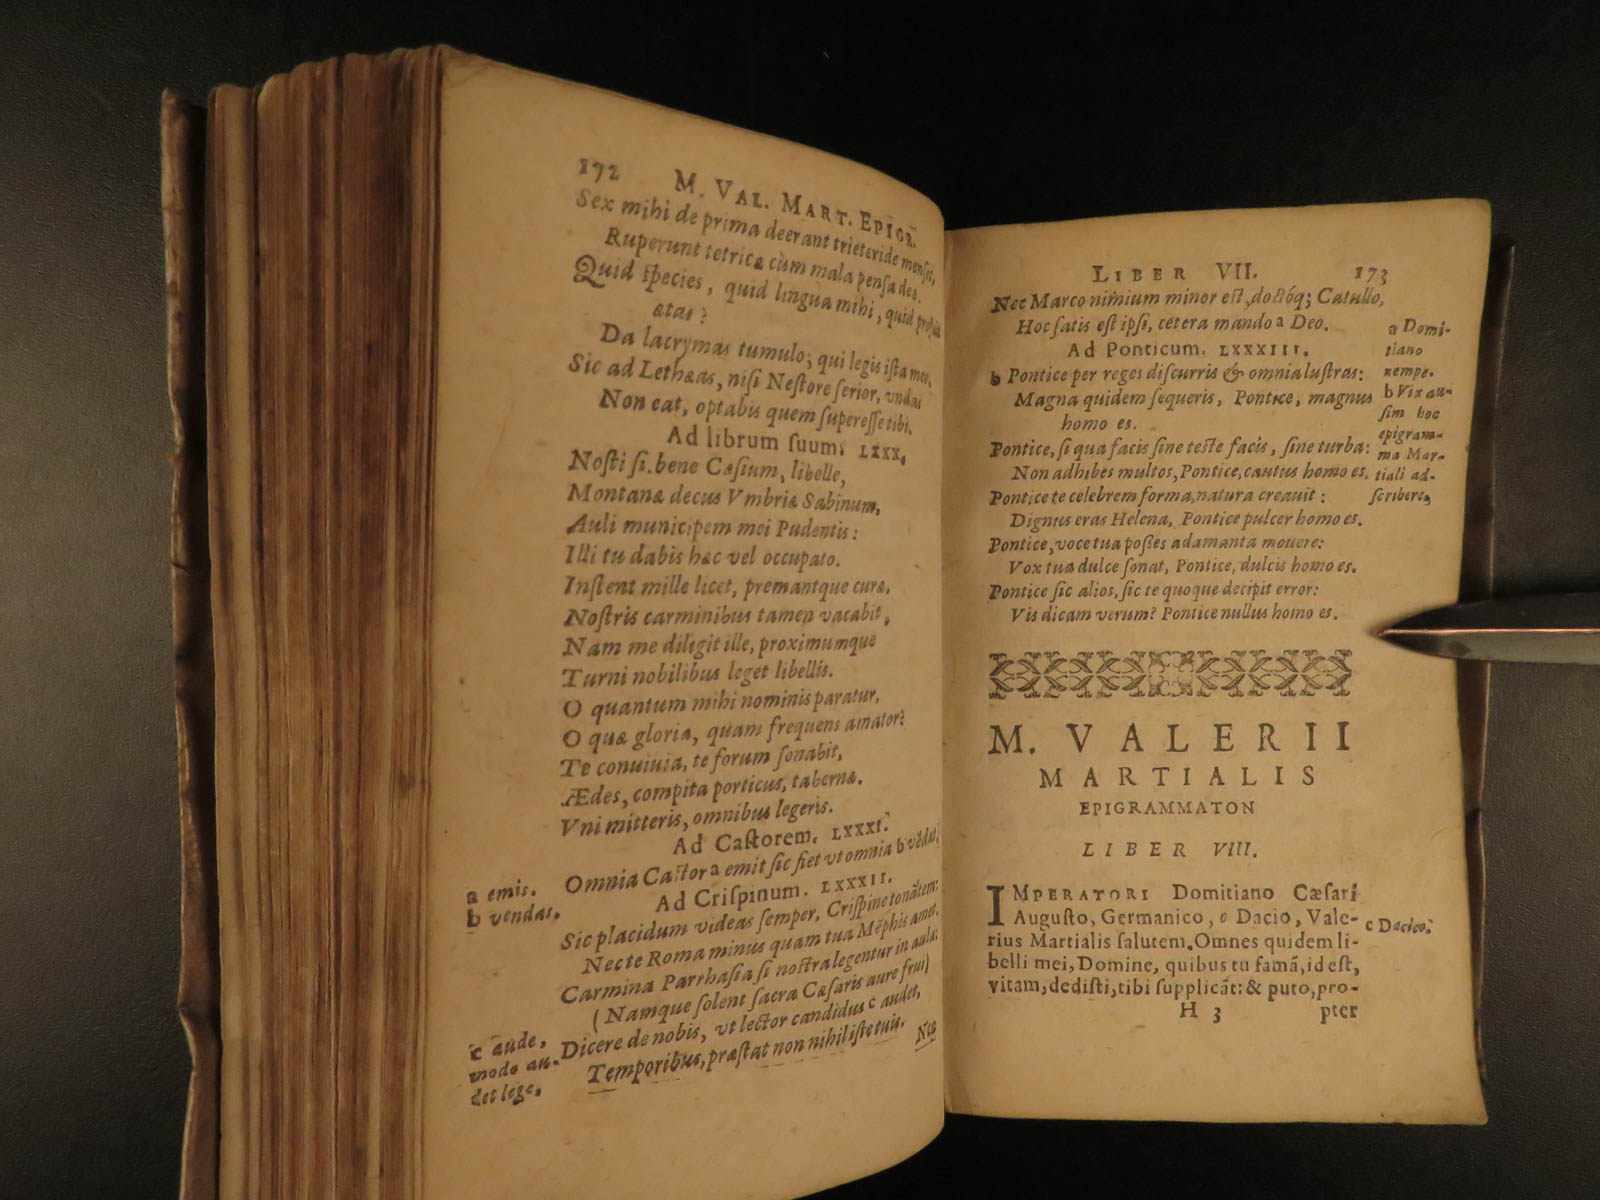 172 M. VAL. MART. EPIGR.
Sex mihi de prima deerant trieteride menses,
Ruperunt tetricæ cùm mala pensa deæ.
Quid species, quid lingua mihi, quid profuit
ætas?
Da lacrymas tumulo, qui legis ista meo,
Sic ad Lethæas, nisi Nestore serior, vndas
Non eat, optabis quem superesse tibi.
Ad librum suum. LXXX.
Nosti si bene Cæsium, libelle,
Montanæ decus Vmbriæ Sabinum,
Auli municipem mei Pudentis:
Illi tu dabis hæc vel occupato.
Instent mille licet, premantque curæ.
Nostris carminibus tamen vacabit,
Nam me diligit ille, proximumque
Turni nobilibus leget libellis.
O quantum mihi nominis paratur,
O quæ gloria, quam frequens amator?
Te conuiuia, te forum sonabit,
Ædes, compita porticus, tabernæ.
Vni mitteris, omnibus legeris.
Ad Castorem. LXXXI.
a emis. Omnia Castor a emit sic fiet vt omnia b vēdat,
b vendas. Ad Crispinum. LXXXII.
Sic placidum videas semper, Crispine tonātem:
Necte Roma minus quam tua Mēphis amet.
Carmina Parrhasia si nostra legentur in aula:
(Namque solent sacra Cæsaris aure frui)
c aude, Dicere de nobis, vt lector candidus c audet,
modo au- Temporibus, præstat non nihil iste tuis.
det lege. Nec
LIBER VII. 173
Nec Marco nimium minor est, doctóq; Catullo,
Hoc satis est ipsi, cetera mando a Deo. a Domi-
Ad Ponticum. LXXXIII. tiano
b Pontice per reges discurris & omnia lustras: nempe.
Magna quidem sequeris, Pontice, magnus b Vix au-
homo es. sim hoc
Pontice, si qua facis sine teste facis, sine turba: epigram-
Non adhibes multos, Pontice, cautus homo es. ma Mar-
tiali ad-
Pontice te celebrem forma, natura creauit: scribere,
Dignus eras Helena, Pontice pulcer homo es.
Pontice, voce tua posses adamanta mouere:
Vox tua dulce sonat, Pontice, dulcis homo es.
Pontice sic alios, sic te quoque decipit error:
Vis dicam verum? Pontice nullus homo es.
M. VALERII
MARTIALIS
EPIGRAMMATON
LIBER VIII.
IMPERATORI Domitiano Cæsari
Augusto, Germanico, c Dacio, Vale- c Dacico.
rius Martialis salutem. Omnes quidem li-
belli mei, Domine, quibus tu famā, id est,
vitam, dedisti, tibi supplicāt: & puto, pro-
H 3 pter